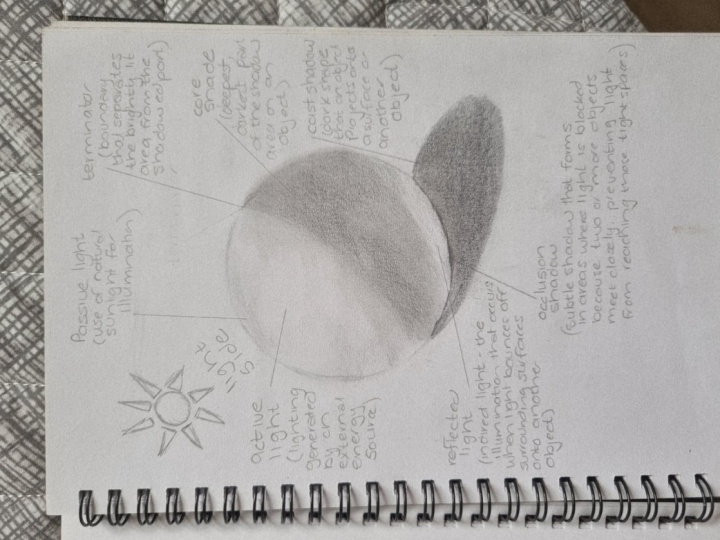 terminator
(boundary
that separates
the brightly lit
area from the
shadowed part)
core
shade
(deepest,
darkest part
of the shadow
area on an
object)
cast shadow
(dark shape
that an object
projects onto
a surface or
another
object)
Passive light
(use of natural
sunlight for
illumination)
light
side
active
light
(lighting
generated
by an
external
energy
source)
reflected
light
(indired light - the
illumination that occurs
when light bounces off
surrounding surfaces
onto another
object)
occlusion
shadow
(subtle shadow that forms
in areas where light is blocked
because two or more objects
meet closely, preventing light
from reaching those tight spaces)